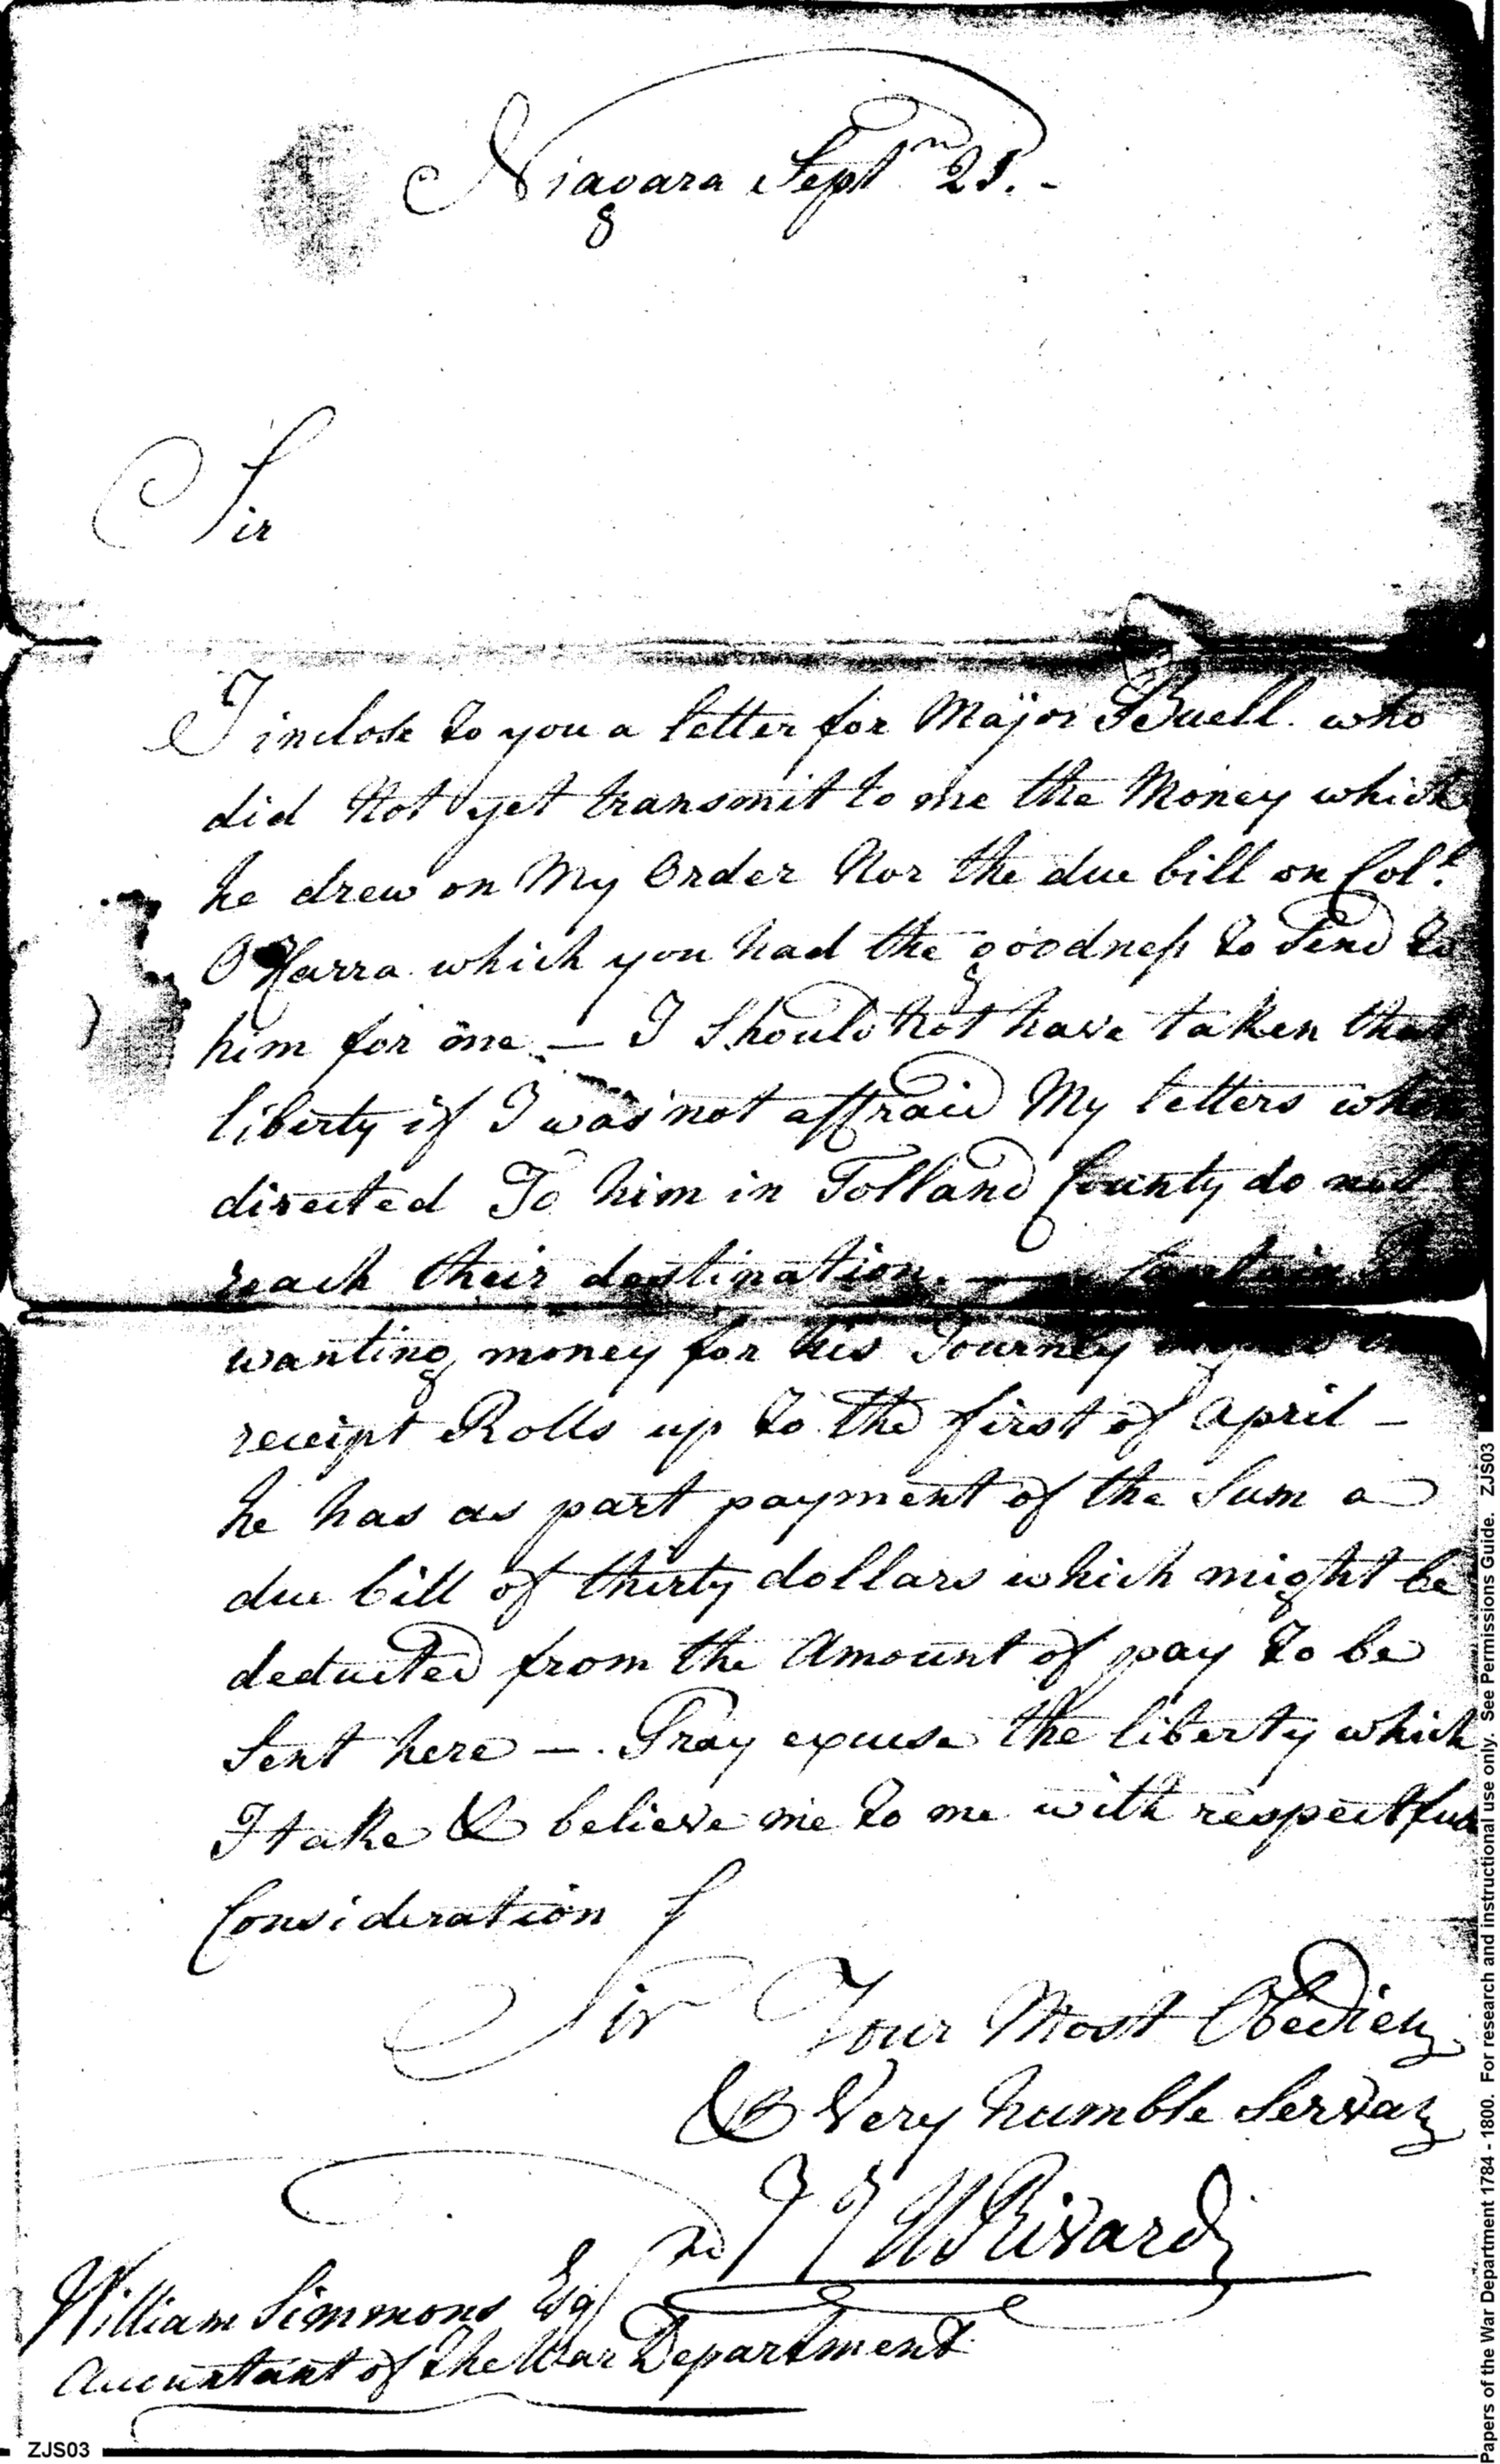 Niagara Septr 25. -
Sir
I inclose to you a letter for Major Buell. who
did Not yet transmit to me the Money which
he drew on My Order Nor the due bill on Coll.
OHarra which you had the goodness to Send to
him for me. — I Should Not have taken that
liberty if I was not affraid My letters when
directed To him in Tolland County do not
reach their destination. —
wanting money for his Journey
receipt Rolls up to the first of April —
he has as part payment of the Sum a
due bill of thirty dollars which might be
deducted from the Amount of pay to be
Sent here —. Pray excuse the liberty which
I take & believe me to me with respectfull
Consideration
Sir Your Most Obedient
& Very humble Servant
J J U Rivardi
William Simmons Esq
Accountant of the War Department
ZJS03
Papers of the War Department 1784 - 1800. For research and instructional use only. See Permissions Guide. ZJS03